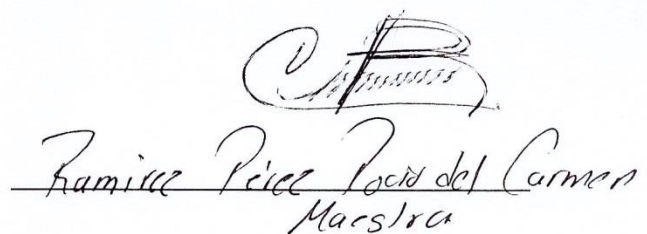 Ramirez Pérez Rocio del Carmen
Maestra